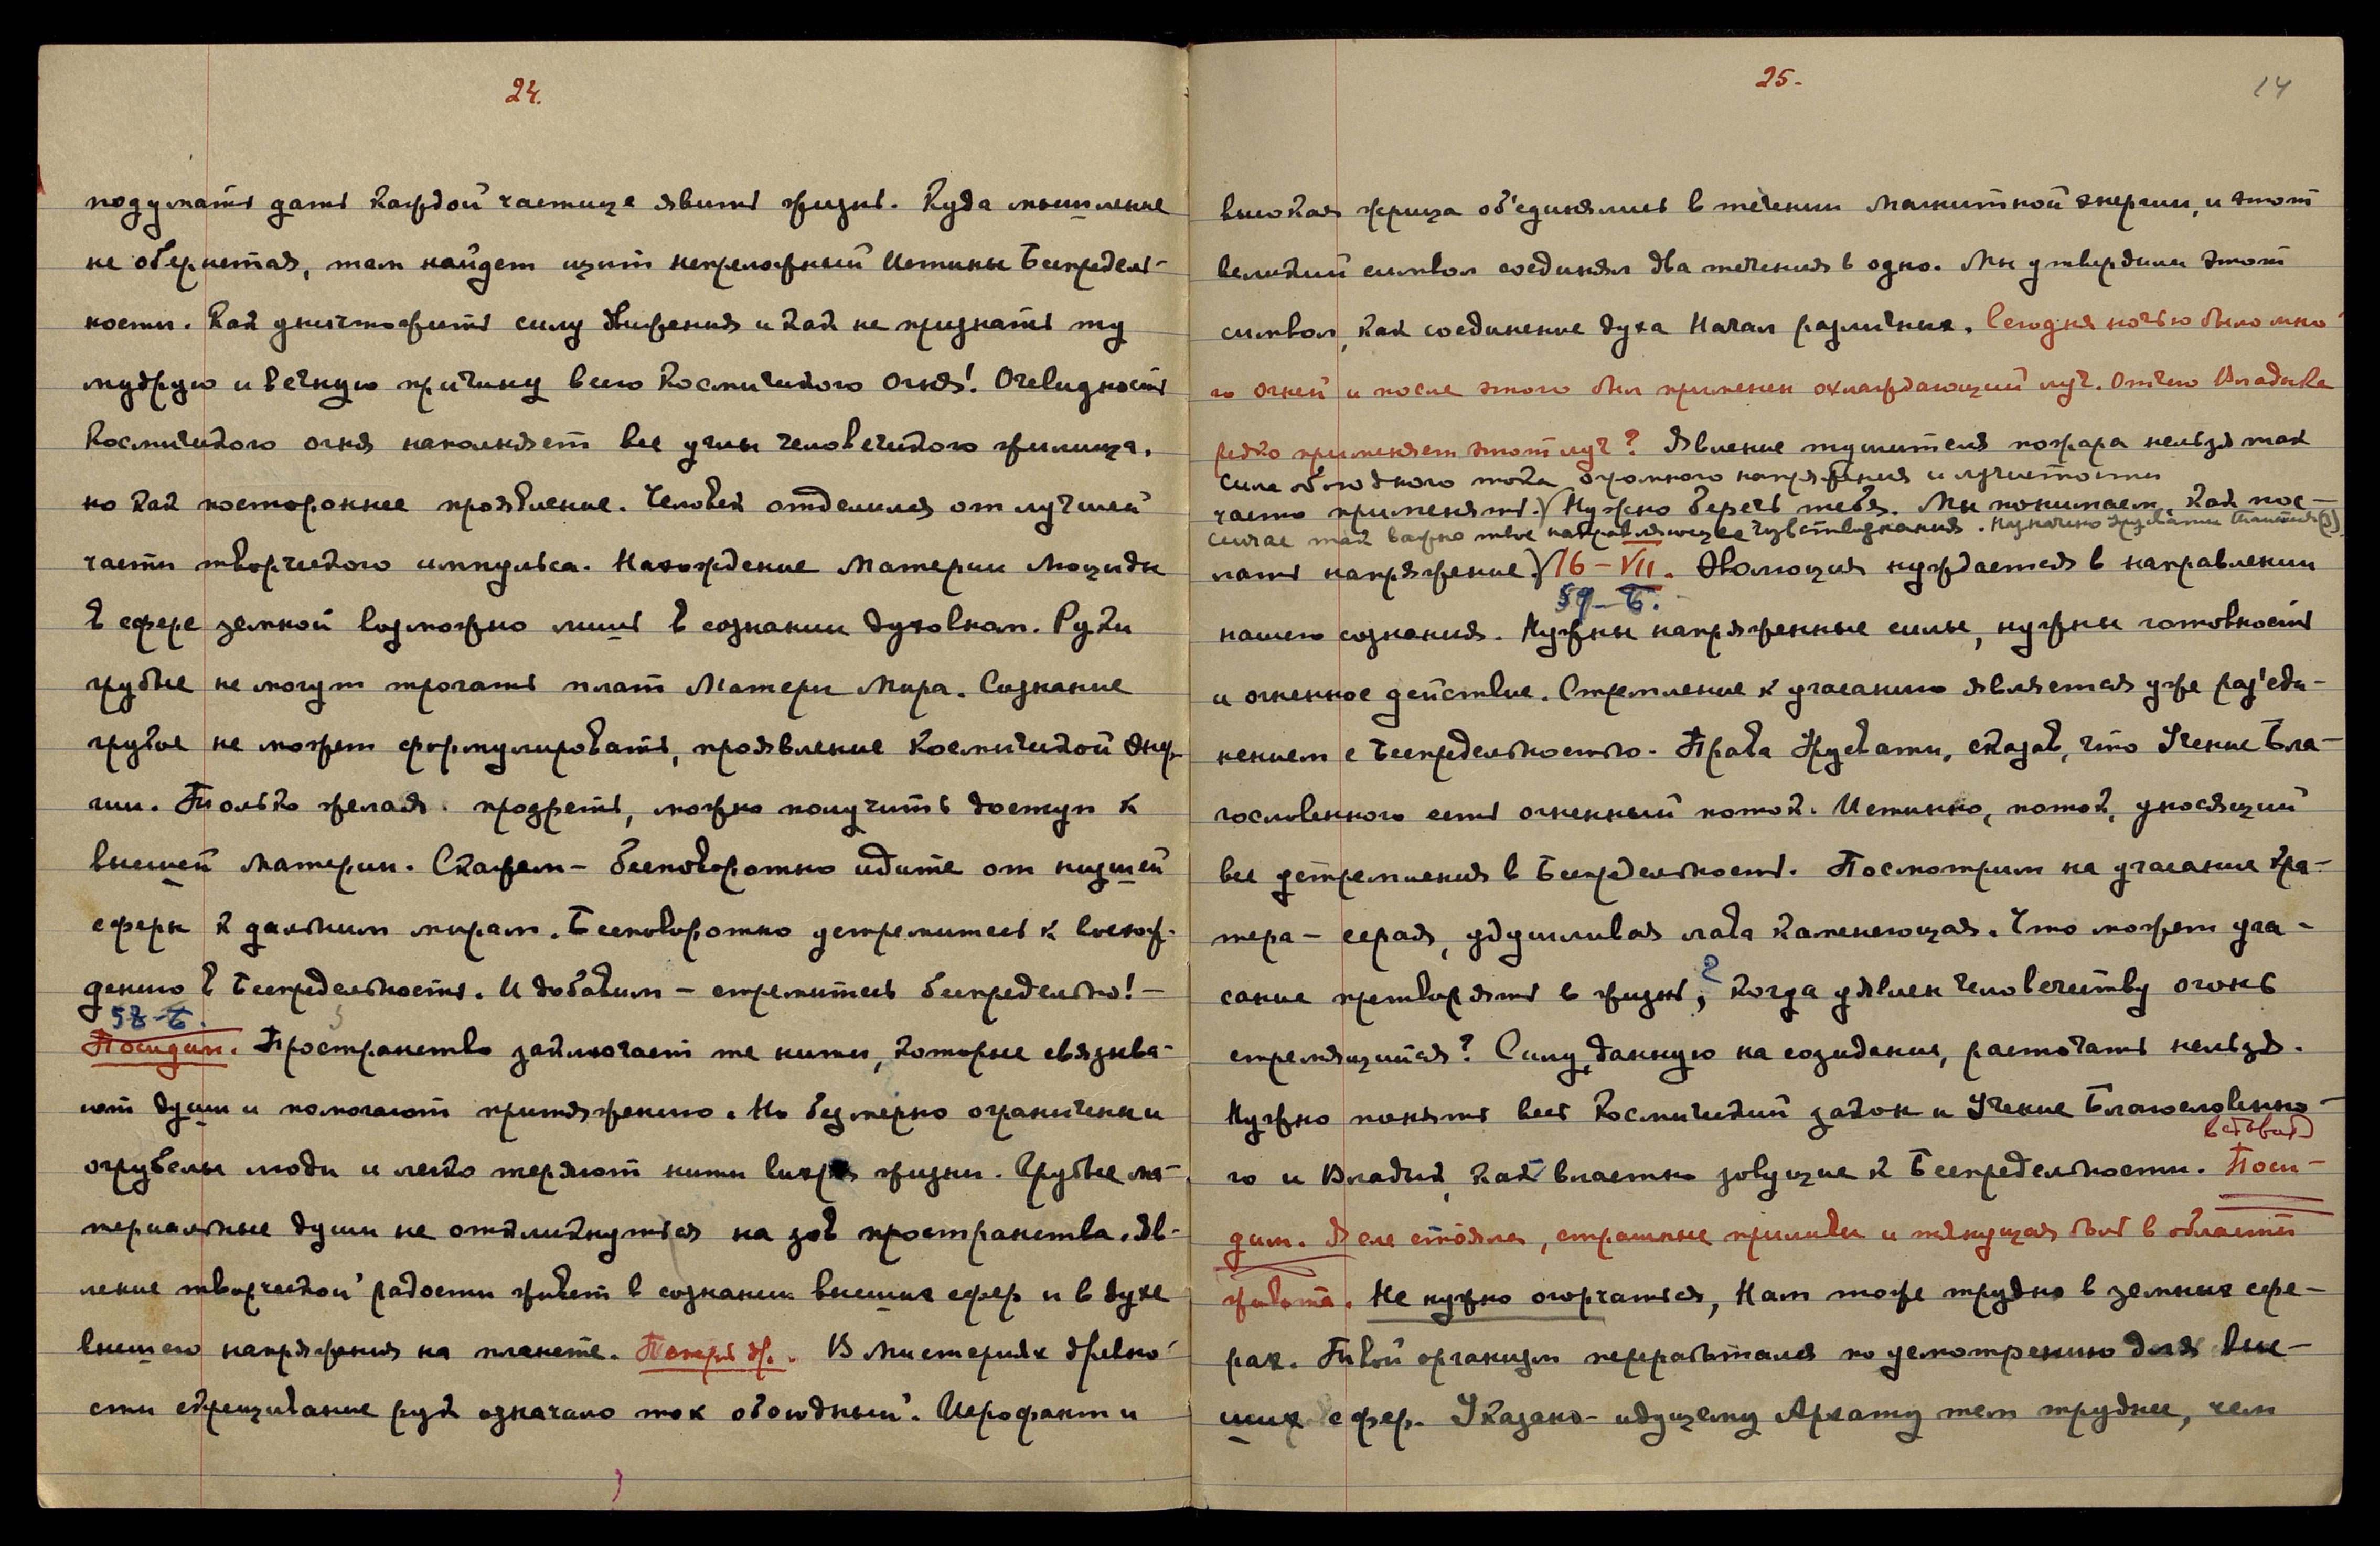 24.
подумать дать каждой частице явить жизнь. Куда мышление
не обернется, там найдет щит непреложный Истины Беспредель-
ности. Как уничтожить силу движения и как не признать ту
мудрую и вечную причину всего Космического Огня! Очевидность
Космического огня наполняет все углы человеческого жилища,
но как постороннее проявление. Человек отделился от лучшей
части творческого импульса. Нахождение Материи Люциды
в сфере земной возможно лишь в сознании духовном. Руки
грубые не могут трогать плат Матери Мира. Сознание
грубое не может формулировать, проявление Космической Энер-
гии. Только желая прозреть, можно получить доступ к
высшей материи. Скажем – бесповоротно идите от низшей
сферы к дальним мирам. Бесповоротно устремитесь к восхож-
дению в Беспредельность. И добавим – стремитесь беспредельно! –
58-Б.
Посидим. Пространство заключает те нити, которые связыва-
ют души и помогают притяжению. Но безмерно ограничены и
огрубелы люди и легко теряют нити вихря жизни. Грубые ма-
териальные души не откликнутся на зов пространства. Яв-
ление творческой радости живет в сознании высших сфер и в духе
высшего напряжения на планете. В мистериях древно-
сти скрещивание рук означало ток обоюдный. Иерофант и
25.
14
высокая жрица объединялись в течении магнитной энергии, и этот
великий символ соединял два течения в одно. Мы утвердили этот
символ, как соединение духа Начал различных. Сегодня ночью было мно-
го огней и после этого был применен охлаждающий луч. Отчего Владыка
редко применяет этот луч? Явление тушителя пожара нельзя так
Сила обоюдного тока огромного напряжения и лучистости
часто применять.) Нужно беречь тебя. Мы понимаем, как пос-
сейчас так важно твое направляющее чувствознание.
лать напряжение.) 16 – VII. Эволюция нуждается в направлении
§9 – Б.
нашего сознания. Нужны напряженные силы, нужны готовность
и огненное действие. Стремление к угасанию является уже раз'еди-
нением с Беспредельностью. Права Урусвати, сказав, что Учение Бла-
гословенного есть огненный поток. Истинно, поток, уносящий
все устремления в Беспредельность. Посмотрим на угасание кра-
тера – серая, удушливая лава каменеющая. Что может уга-
сание претворять в жизнь, ? когда уявлен человечеству огонь
стремящийся? Силу, данную на созидание, расточать нельзя.
Нужно понять весь Космический закон и Учение Благословенно-
го и Владык, как властно зовущие к Беспредельности. Поси-
дим. Я еле стояла, страшные приливы и тянущая боль в области
живота. Не нужно огорчаться, Нам тоже трудно в земных сфе-
рах. Твой организм переработался по усмотрению для выс-
ших сфер. Указано – идущему Архату тем труднее, чем